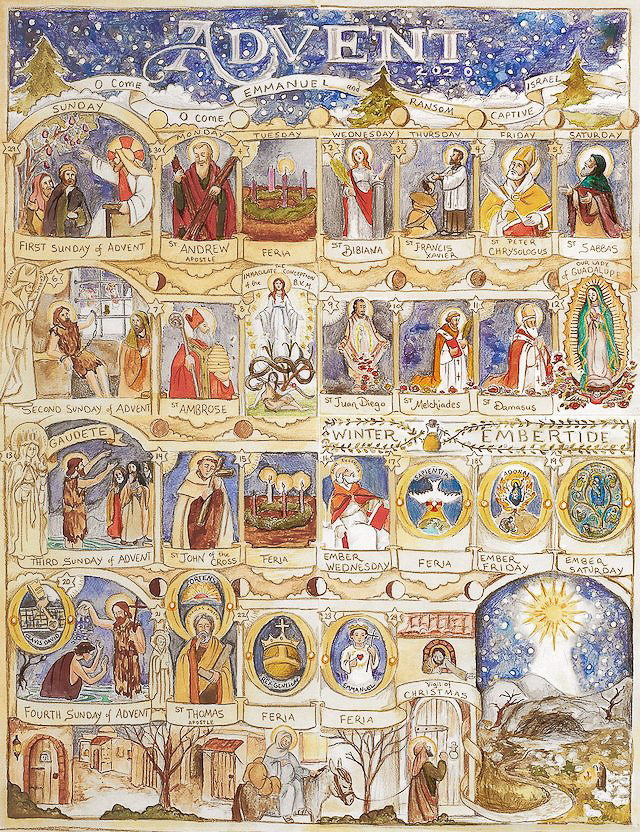 ADVENT
2020
O COME EMMANUEL and RANSOM CAPTIVE ISRAEL
O COME
SUNDAY MONDAY TUESDAY WEDNESDAY THURSDAY FRIDAY SATURDAY
29 30 1 2 3 4 5
FIRST SUNDAY of ADVENT
ST ANDREW APOSTLE
FERIA
ST BIBIANA
ST FRANCIS XAVIER
ST PETER CHRYSOLOGUS
ST SABBAS
6 7 8 9 10 11 12
IMMACULATE CONCEPTION of the B.V.M.
OUR LADY of GUADALUPE
SECOND SUNDAY of ADVENT
ST AMBROSE
ST Juan Diego
ST Melchiades
ST Damasus
GAUDETE
WINTER EMBERTIDE
13 14 15 16 17 18 19
SAPIENTIA
ADONAI
THIRD SUNDAY of ADVENT
ST JOHN of the CROSS
FERIA
EMBER WEDNESDAY
FERIA
EMBER FRIDAY
EMBER SATURDAY
20 21 22 23 24
CLAVIS DAVID
ORIENS
REX GENTIUM
EMMANUEL
Vigil of CHRISTMAS
FOURTH SUNDAY of ADVENT
ST THOMAS APOSTLE
FERIA
FERIA